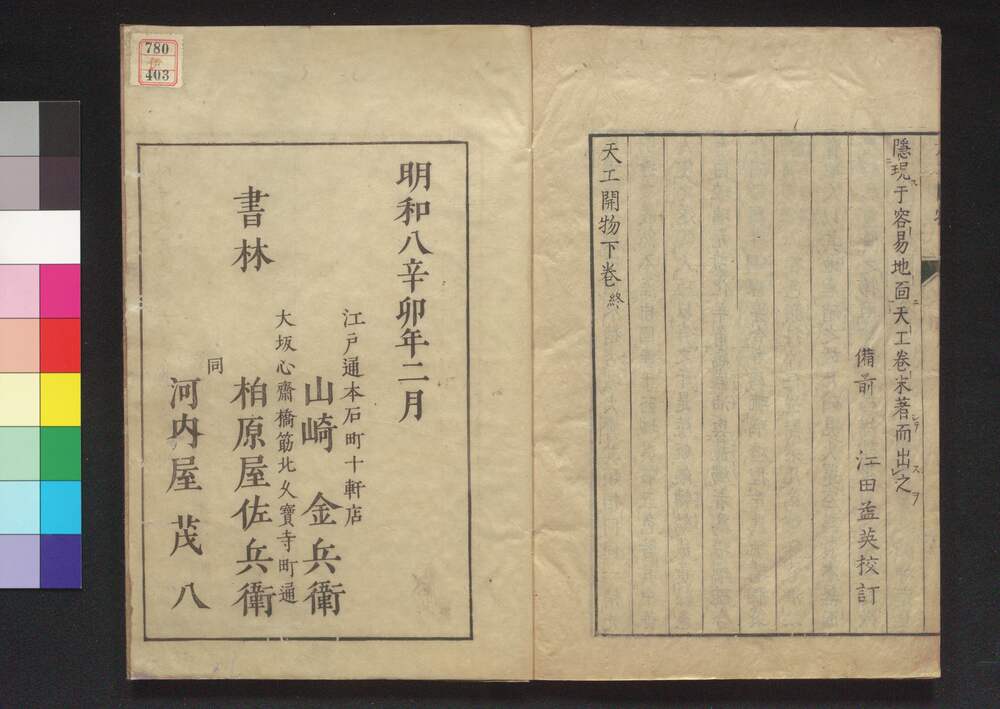 隱現于容易地面天工卷末著而出之
備前　江田益英校訂
天工開物下卷終
780
403
明和八辛卯年二月
江戸通本石町十軒店
山崎　金兵衛
大坂心齋橋筋北久寶寺町通
書林　柏原屋佐兵衛
同
河内屋　茂八